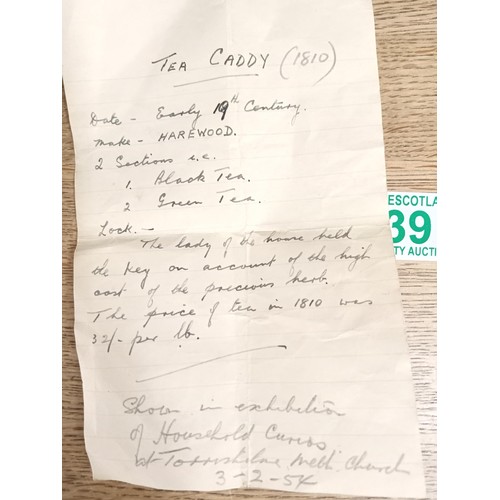 TEA CADDY (1810)
Date - Early 19th Century.
Make - HAREWOOD.
2 Sections i.e.
1. Black Tea.
2 Green Tea.
Lock. -
The lady of the house held
the key on account of the high
cost of the precious herb.
The price of tea in 1810 was
32/- per lb.
Shown in exhibition
of Household Curios
at Methd. Church
3-2-54
ESCOTLA
39
TY AUCTI